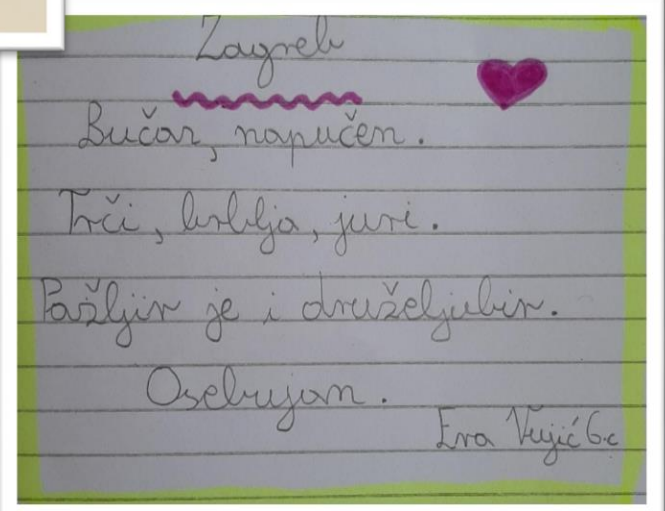 Zagreb
Bučan, napučen.
Trči, brblja, juri.
Pažljiv je i druželjubiv.
Osebujan.
Eva Vujić 6.c